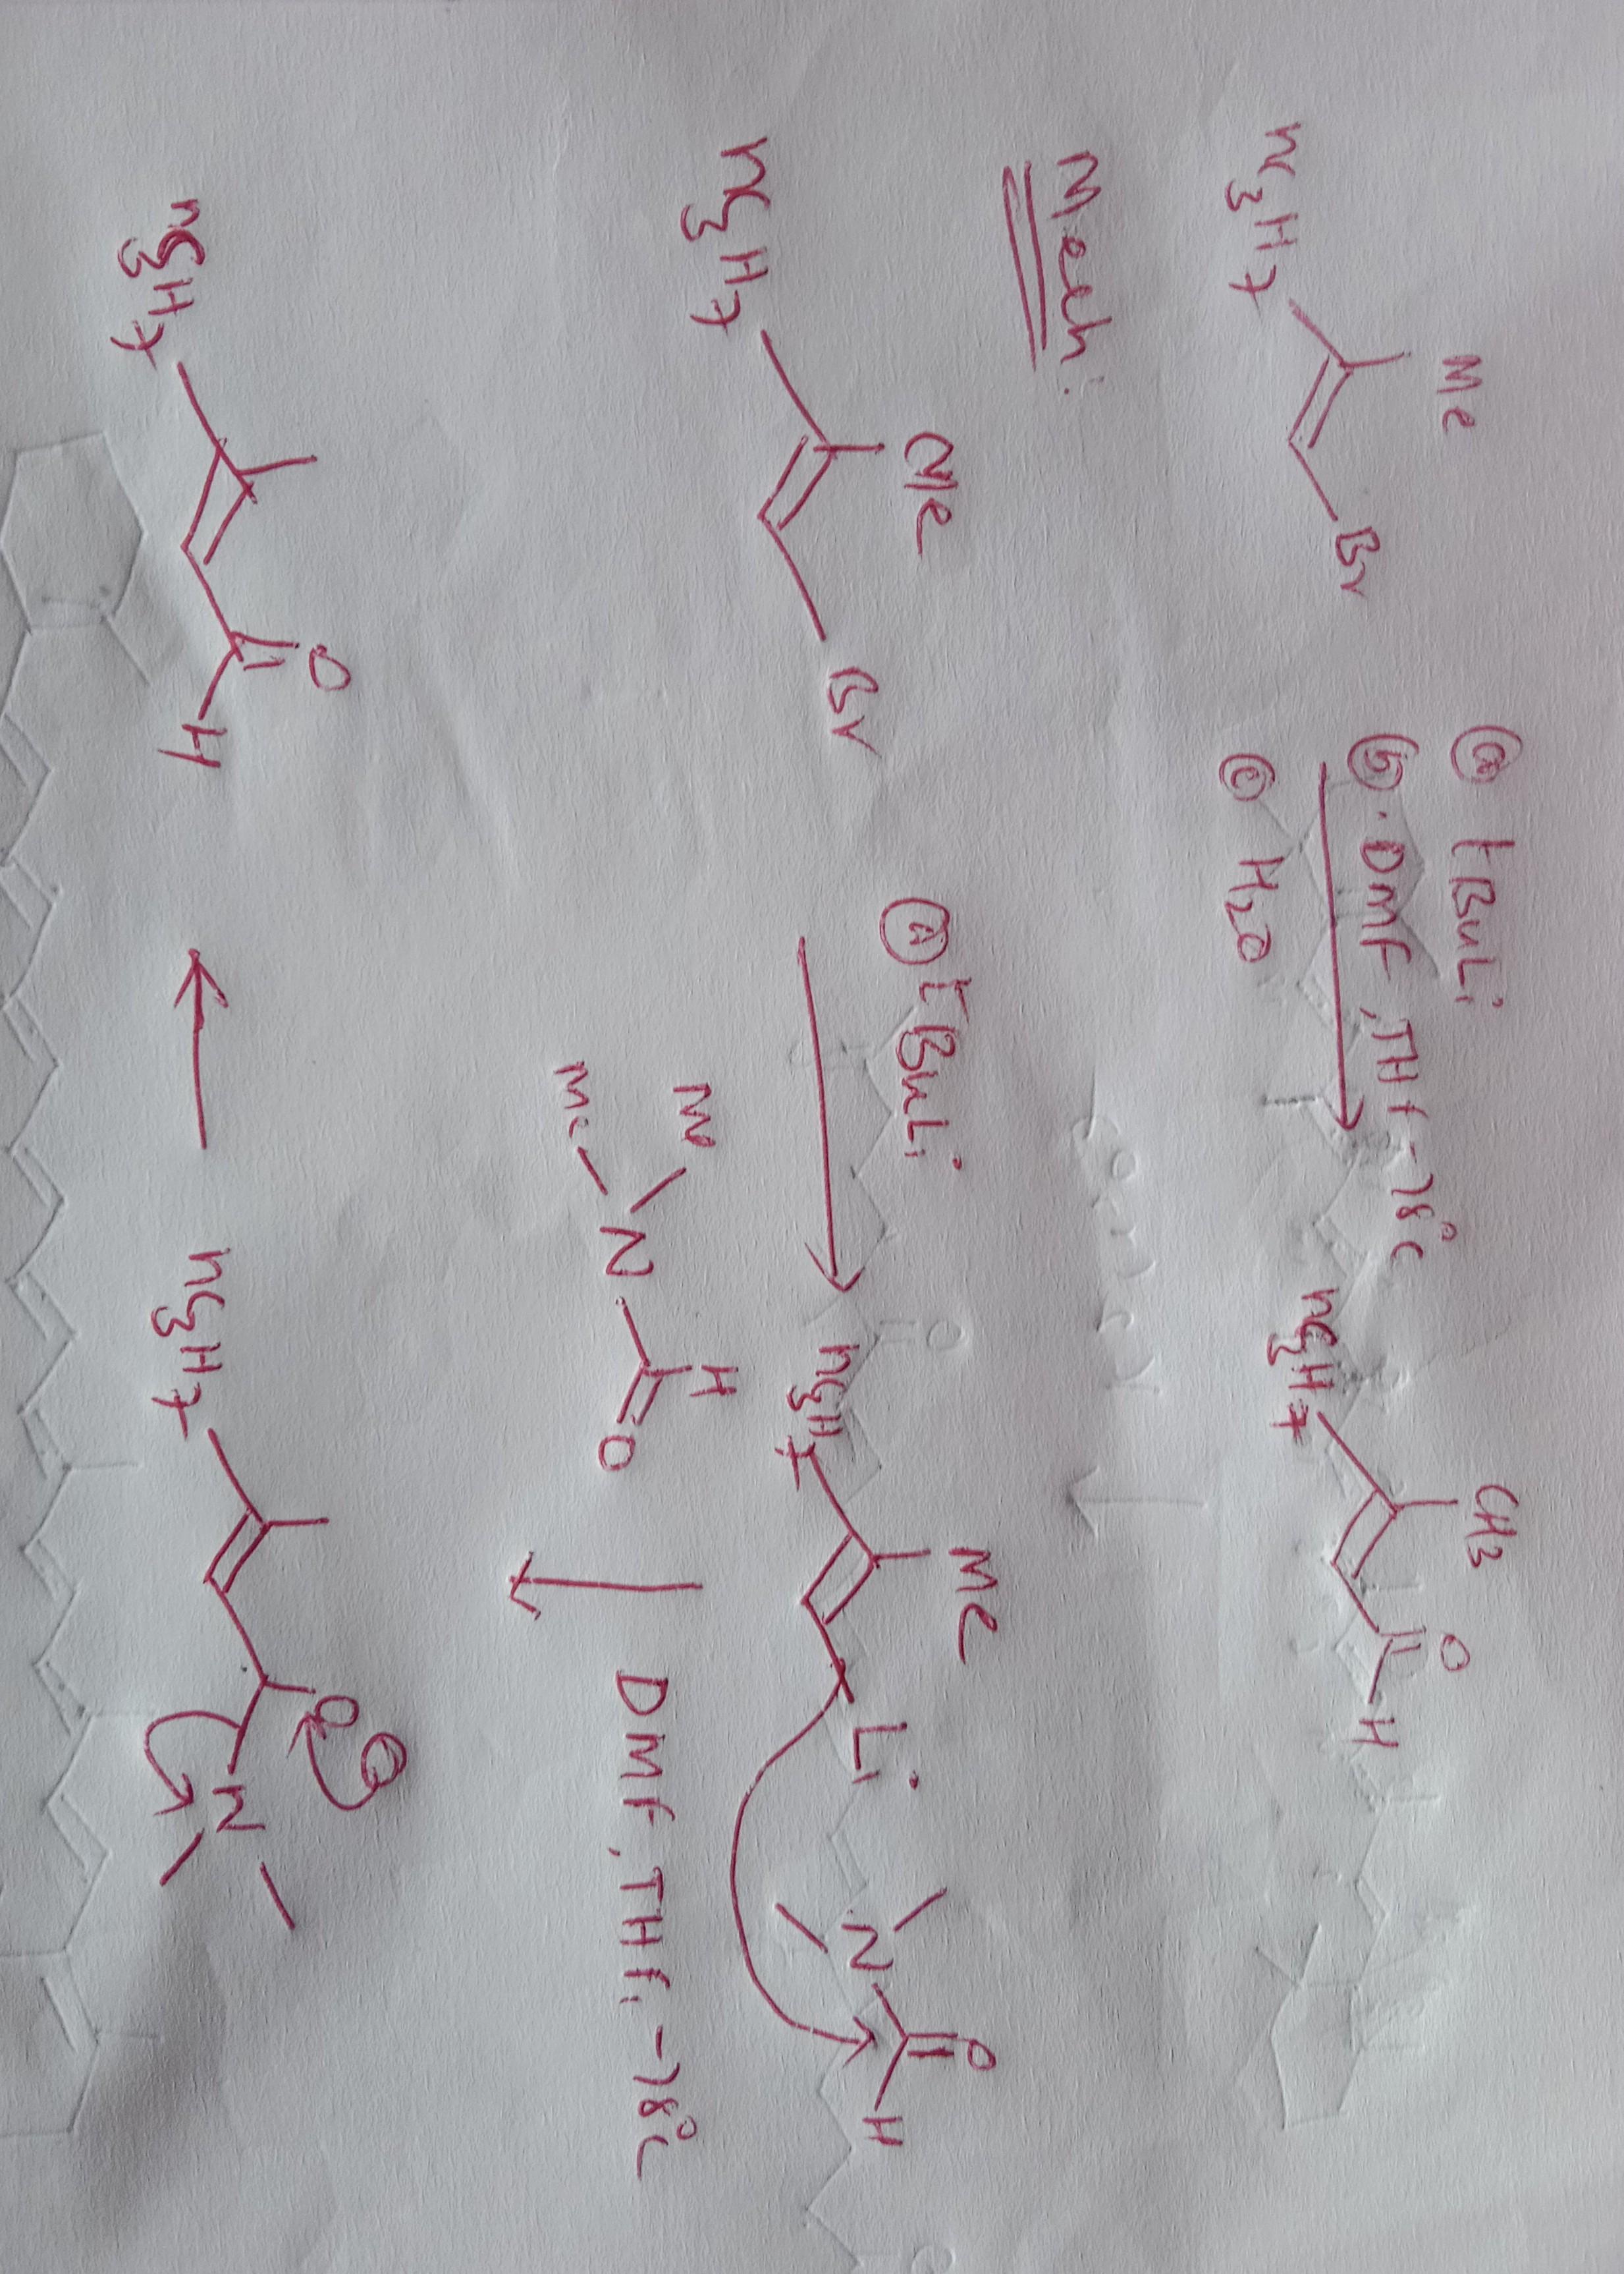 Me
nC3H7 Br
(a) tBuLi
(b) . DMF, THF -78°C
(c) H2O
CH3
nC3H7 O
H
Mech:
Me
nC3H7 Br
(a) tBuLi
Me
nC3H7 Li
N O
H
Me
Me N H
O
DMF, THF, -78°C
nC3H7 O
H
nC3H7 O ⊖
N